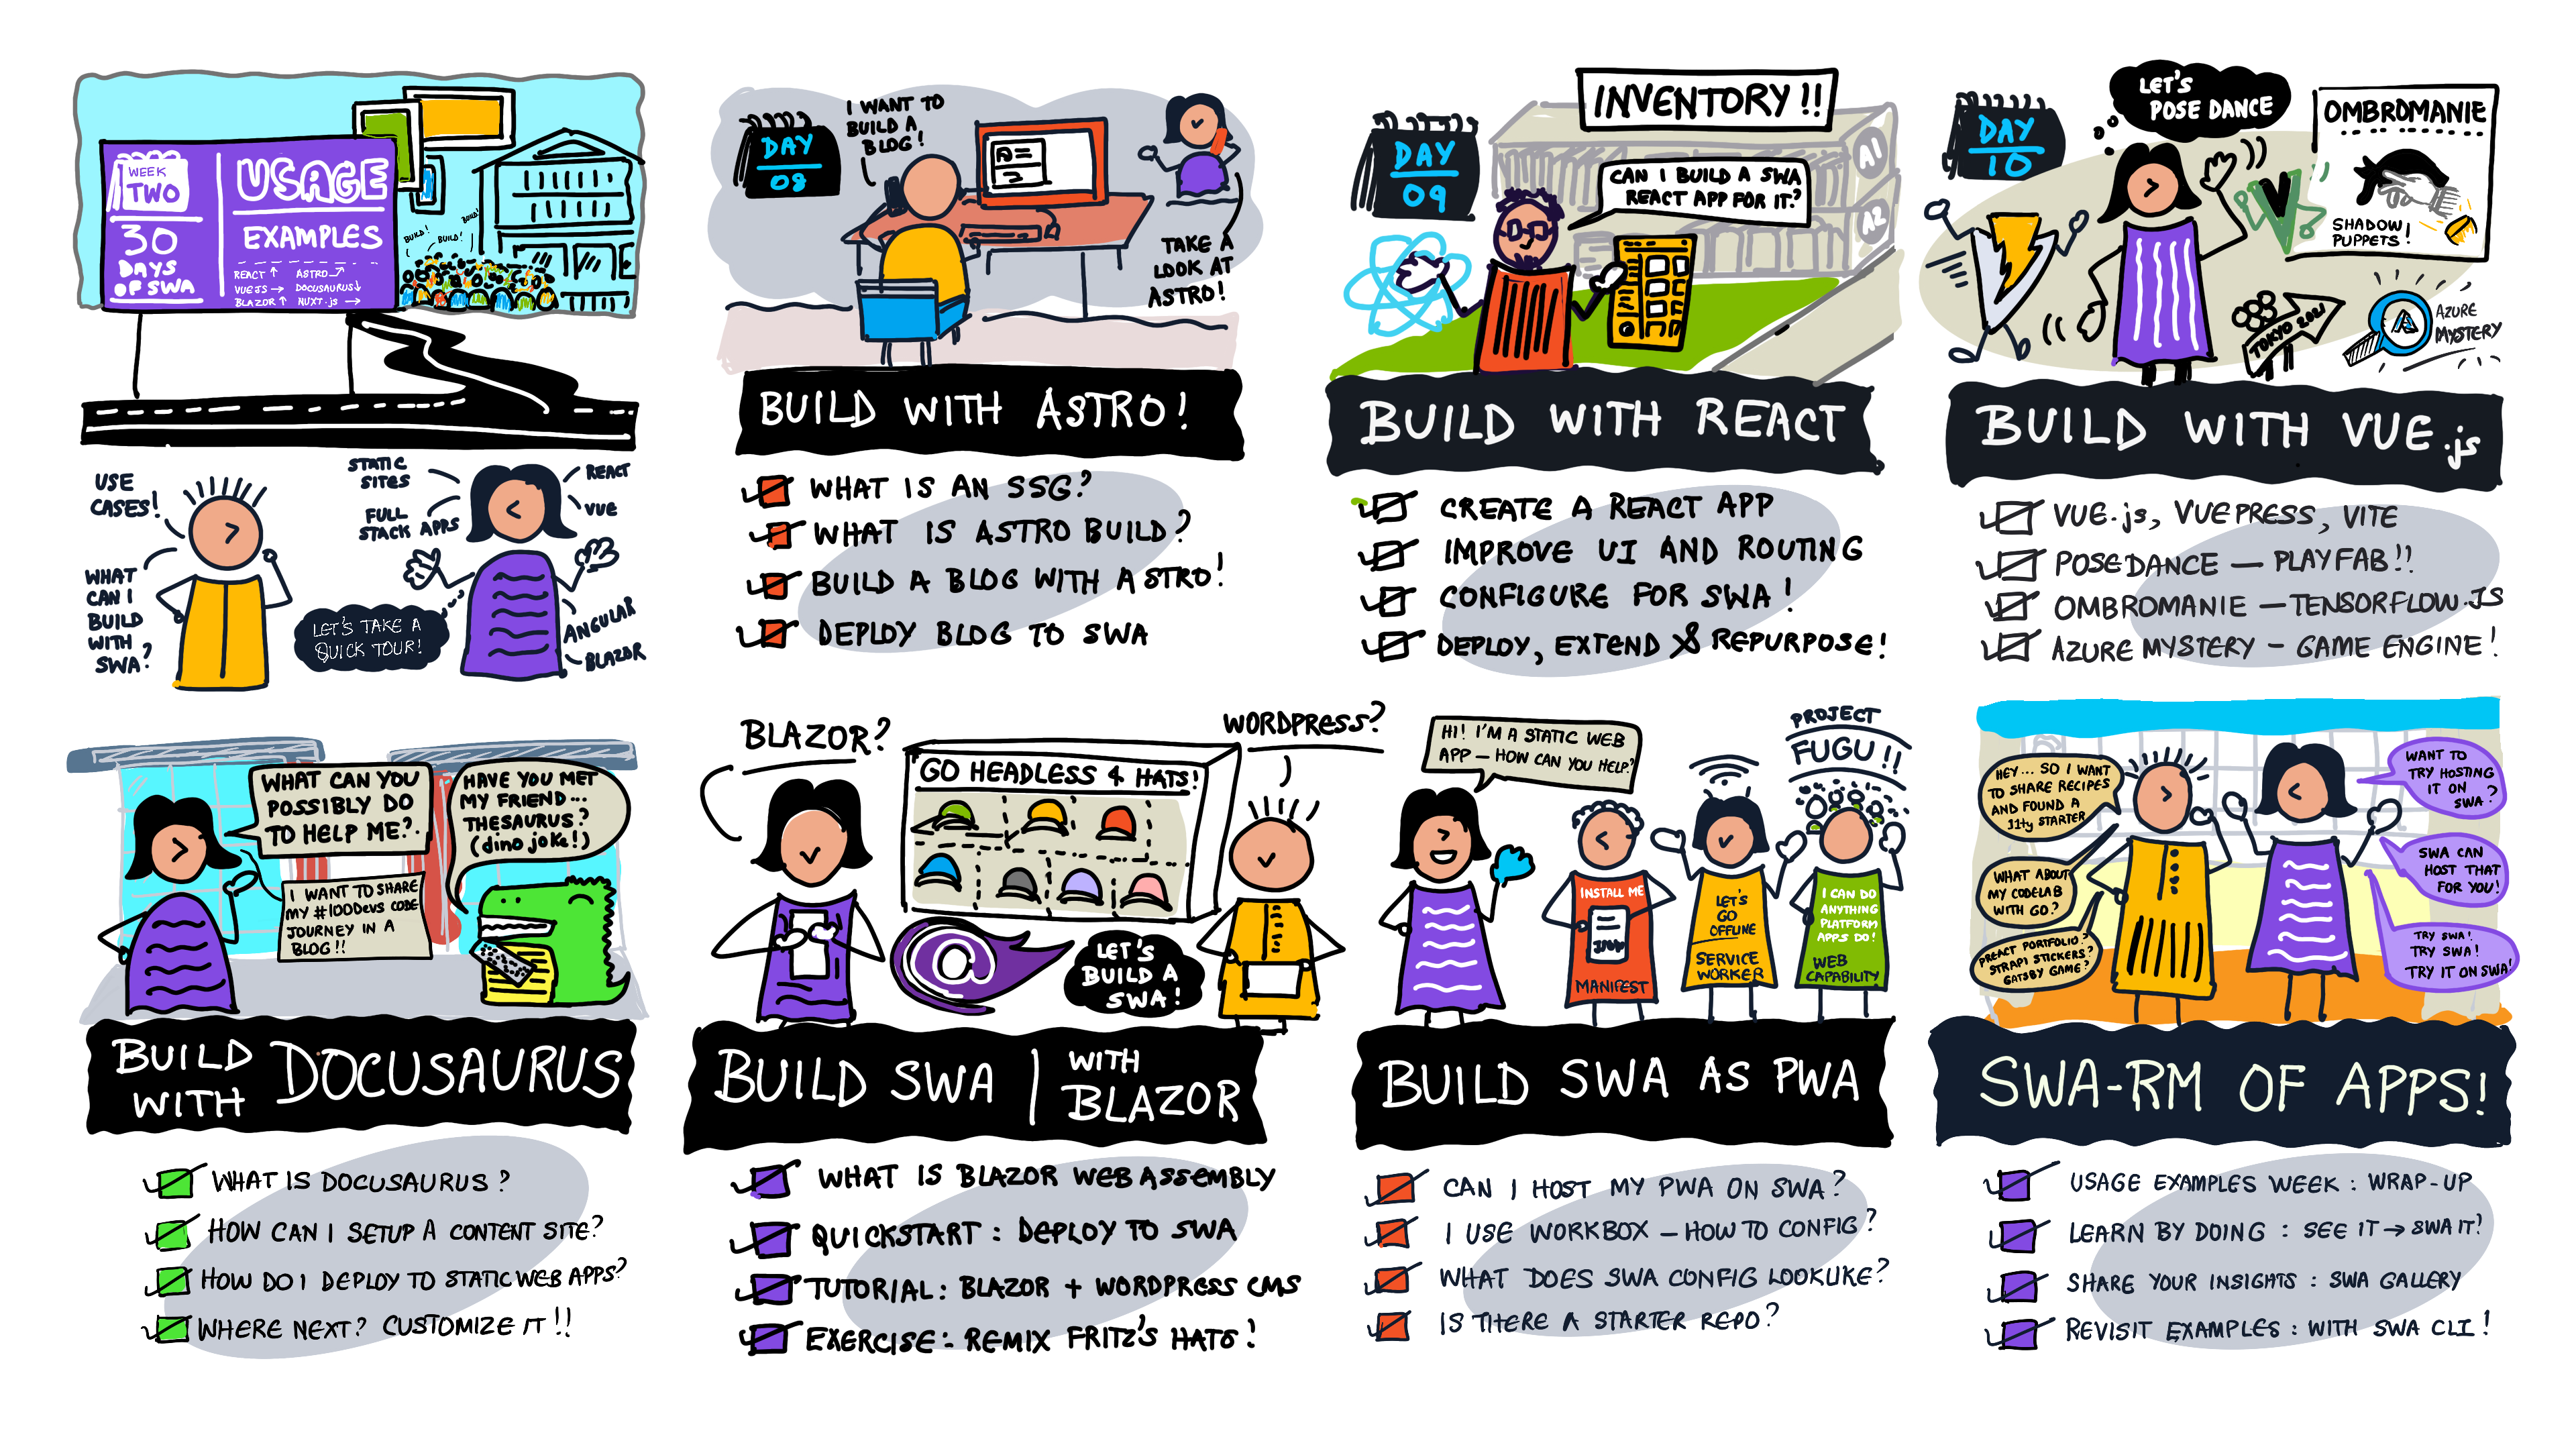 WEEK
TWO
30
DAYS
OF SWA
USAGE
EXAMPLES
REACT ↑ ASTRO ↗
VUEJS → DOCUSAURUS ↓
BLAZOR ↑ NUXT.js →
BUILD!
BUILD!
BUILD!
USE
CASES!
WHAT
CAN I
BUILD
WITH
SWA?
STATIC
SITES
FULL
STACK APPS
REACT
VUE
ANGULAR
BLAZOR
LET'S TAKE A
QUICK TOUR!
DAY
08
I WANT TO
BUILD A
BLOG!
TAKE A
LOOK AT
ASTRO!
BUILD WITH ASTRO!
WHAT IS AN SSG?
WHAT IS ASTRO BUILD?
BUILD A BLOG WITH ASTRO!
DEPLOY BLOG TO SWA
DAY
09
INVENTORY!!
CAN I BUILD A SWA
REACT APP FOR IT?
A1
A2
BUILD WITH REACT
CREATE A REACT APP
IMPROVE UI AND ROUTING
CONFIGURE FOR SWA!
DEPLOY, EXTEND & REPURPOSE!
DAY
10
LET'S
POSE DANCE
OMBROMANIE
SHADOW
PUPPETS!
TOKYO 2021
AZURE
MYSTERY
BUILD WITH VUE.js
VUE.js, VUEPRESS, VITE
POSEDANCE — PLAYFAB!!
OMBROMANIE — TENSORFLOW.JS
AZURE MYSTERY – GAME ENGINE!
WHAT CAN YOU
POSSIBLY DO
TO HELP ME?.
HAVE YOU MET
MY FRIEND...
THESAURUS?
(dino joke!)
I WANT TO SHARE
MY #100Devs CODE
JOURNEY IN A
BLOG!!
BUILD
WITH DOCUSAURUS
WHAT IS DOCUSAURUS?
HOW CAN I SETUP A CONTENT SITE?
HOW DO I DEPLOY TO STATIC WEB APPS?
WHERE NEXT? CUSTOMIZE IT!!
BLAZOR?
WORDPRESS?
GO HEADLESS 4 HATS!
@
LET'S
BUILD A
SWA!
BUILD SWA | WITH
BLAZOR
WHAT IS BLAZOR WEBASSEMBLY
QUICKSTART: DEPLOY TO SWA
TUTORIAL: BLAZOR + WORDPRESS CMS
EXERCISE: REMIX FRITZ'S HATS!
HI! I'M A STATIC WEB
APP — HOW CAN YOU HELP?
PROJECT
FUGU!!
INSTALL ME
JSON
MANIFEST
LET'S
GO
OFFLINE
SERVICE
WORKER
I CAN DO
ANYTHING
PLATFORM
APPS DO!
WEB
CAPABILITY
BUILD SWA AS PWA
CAN I HOST MY PWA ON SWA?
I USE WORKBOX — HOW TO CONFIG?
WHAT DOES SWA CONFIG LOOKLIKE?
IS THERE A STARTER REPO?
HEY... SO I WANT
TO SHARE RECIPES
AND FOUND A
11ty STARTER
WHAT ABOUT
MY CODELAB
WITH GO?
PREACT PORTFOLIO?
STRAPI STICKERS?
GATSBY GAME?
WANT TO
TRY HOSTING
IT ON
SWA?
SWA CAN
HOST THAT
FOR YOU!
TRY SWA!
TRY SWA!
TRY IT ON SWA!
SWA-RM OF APPS!
USAGE EXAMPLES WEEK: WRAP-UP
LEARN BY DOING: SEE IT → SWA IT?
SHARE YOUR INSIGHTS: SWA GALLERY
REVISIT EXAMPLES: WITH SWA CLI!